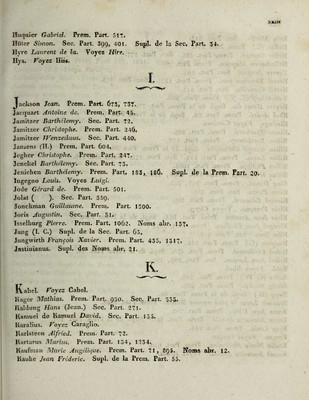 Huquier Gabriel. Prem. Part. 517.
Hüter Simon. Sec. Part. 399, 401. Supl. de la Sec. Part. 34.
Hyre Laurent de la. Voyez Hire.
Hys. Voyez Hiis.
I.
Jackson Jean. Prem. Part. 673, 737.
Jacquart Antoine de. Prem. Part. 45.
Jamitzer Barthélemy. Sec. Part. 72.
Jamitzer Christophe. Prem. Part. 246.
Jamitzer Wenzeslaus. Sec. Part. 440.
Jansens (H.) Prem. Part. 604.
Jegher Christophe. Prem. Part. 247.
Jenckel Barthélemy. Sec. Part. 73.
Jenichen Barthélemy. Prem. Part. 183, 186. Supl. de la Prem. Part. 20.
Ingegno Louis. Voyez Luigi.
Jode Gérard de. Prem. Part. 501.
Jolat ( ). Sec. Part. 359.
Jonckman Guillaume. Prem. Part. 1390.
Joris Augustin. Sec. Part. 31.
Isselburg Pierre. Prem. Part. 1062. Noms abr. 137.
Jung (I. C.) Supl. de la Sec. Part. 65.
Jungwirth François Xavier. Prem. Part. 435, 1317.
Justinianus. Supl. des Noms abr. 21.
K.
Kabel. Voyez Cabel.
Kager Mathias. Prem. Part. 950. Sec. Part. 335.
Kalbang Hans (Jean.) Sec. Part. 271.
Kamuel de Ramuel David. Sec. Part. 135.
Karalius. Voyez Caraglio.
Karlsteen Alfried. Prem. Part. 72.
Kartarus Marius. Prem. Part. 134, 1234.
Kaufman Marie Angélique. Prem. Part. 71, 895. Noms abr. 12.
Kauke Jean Frideric. Supl. de la Prem. Part. 55.